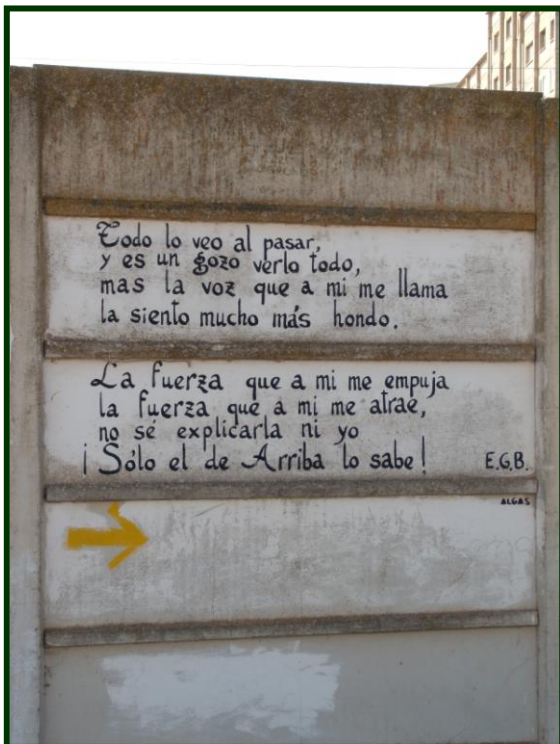 Todo lo veo al pasar,
y es un gozo verlo todo,
mas la voz que a mi me llama
la siento mucho más hondo.
La fuerza que a mi me empuja
la fuerza que a mi me atrae,
no sé explicarla ni yo
¡Sólo el de Arriba lo sabe!
E.G.B.
ALGAS